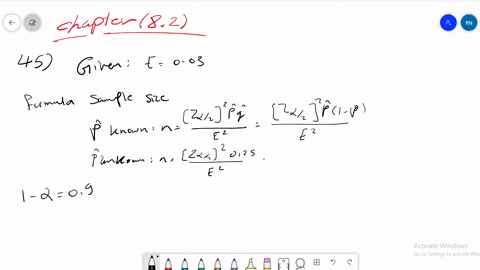 chapter (8.2)
RN
45) Given: E = 0.03
formula sample size
p̂ known: n = [Zα/2]² p̂q̂ / E² = [Zα/2]² p̂(1-p) / E²
p̂ unknown: n = [Zα/2]² 0.25 / E².
1-α = 0.9
Activate Windows
Go to Settings to activate Windows.